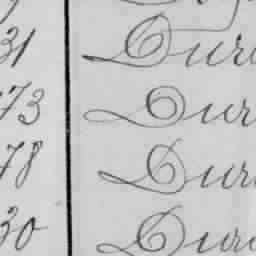 31 Dur
73 Dur
78 Dur
30 Dur